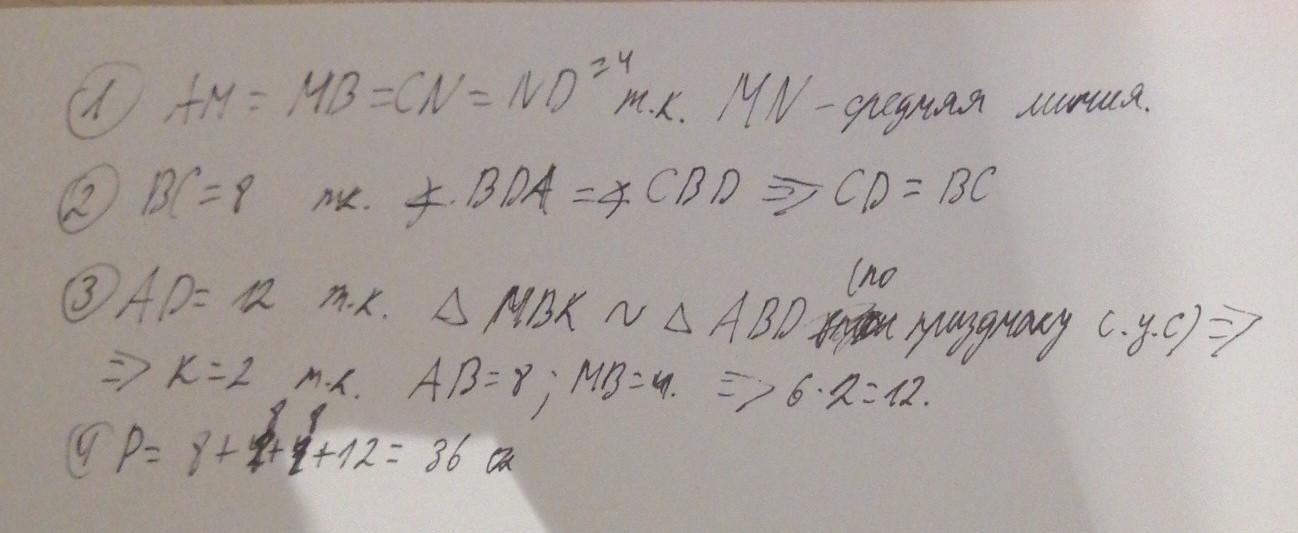 ① AM = MB = CN = ND = 4 т.к. MN - средняя линия.
② BC = 8 т.к. ∡ BDA = ∡ CBD => CD = BC
③ AD = 12 т.к. △ MBK ~ △ ABD (по признаку с.у.с) =>
=> K = 2 т.к. AB = 8; MB = 4. => 6·2 = 12.
④ P = 8 + 8 + 8 + 12 = 36 см